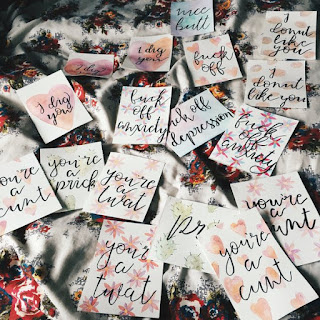 nice
butt
I
donut
like
you
I dig
you
fuck
off
I dig
you
I
donut
like you
fuck
off
anxiety
fuck off
depression
fuck
off
anxiety
you're
a
cunt
you're
a
prick
you're
a
twat
you're
a
cunt
you're
a
twat
you're
a
cunt